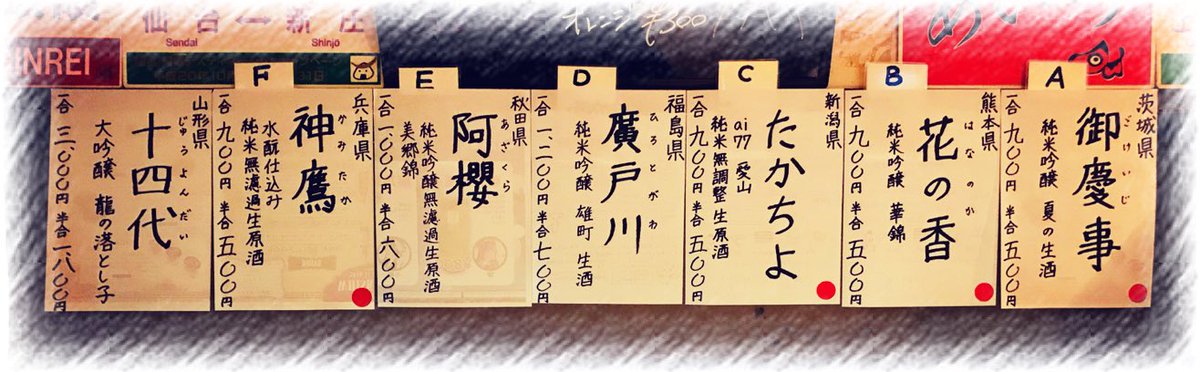 INREI
仙台ー新庄
Sendai
Shinjō
オレンジ ¥300
A
茨城県
御慶事
ごけいじ
純米吟醸 夏の生酒
一合 九〇〇円 半合 五〇〇円
B
熊本県
花の香
はなのか
純米吟醸 華錦
一合 九〇〇円 半合 五〇〇円
C
新潟県
たかちよ
ai77 愛山
純米無調整生原酒
一合 九〇〇円 半合 五〇〇円
D
福島県
廣戸川
ひろとがわ
純米吟醸 雄町 生酒
一合 一、二〇〇円 半合 七〇〇円
E
秋田県
阿櫻
あざくら
純米吟醸無濾過生原酒
美郷錦
一合 一、〇〇〇円 半合 六〇〇円
F
兵庫県
神鷹
かみたか
水酛仕込み
純米無濾過生原酒
一合 九〇〇円 半合 五〇〇円
山形県
十四代
じゅうよんだい
大吟醸 龍の落とし子
一合 三、〇〇〇円 半合 一、八〇〇円